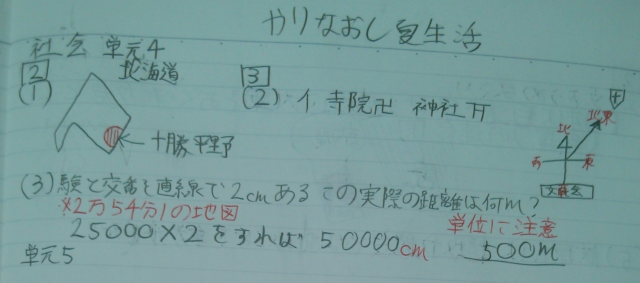 やりなおし夏生活
社会 単元4
2 北海道
(1)
十勝平野
3
(2) イ 寺院卍 神社⛩
北東
北
西 東
文 交 X
(3) 験と交番を直線で2cmある この実際の距離は何m?
※2万54分1の地図 単位に注意
25000×2をすれば 50000cm 500m
単元5